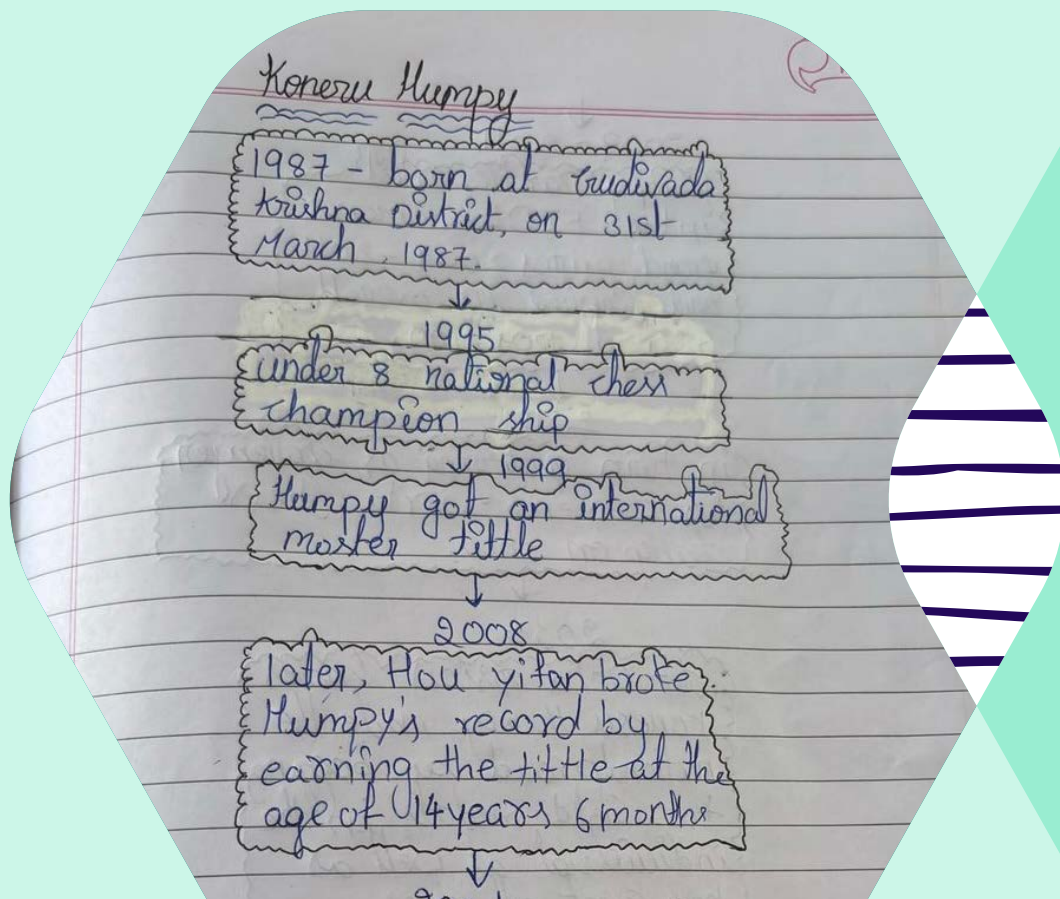 Koneru Humpy
1987 - born at Gudivada
Krishna District, on 31st
March, 1987.
1995
under 8 national chess
champion ship
1999
Humpy got an international
master tittle
2008
later, Hou yifan broke
Humpy's record by
earning the tittle at the
age of 14 years 6 months